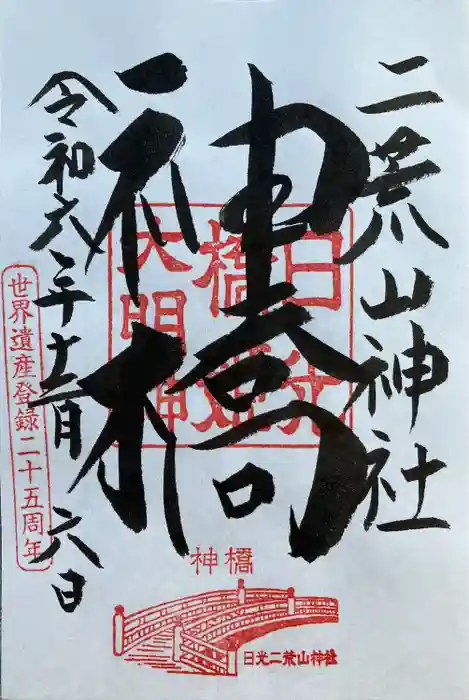 二荒山神社
神橋
令和六年十一月六日
日光
橋姫
大明神
世界遺産登録二十五周年
神橋
日光二荒山神社